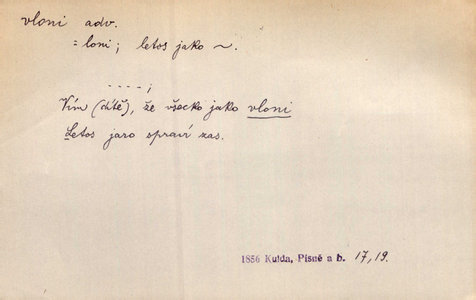 vloni adv.
= loni; letos jako ~.
- - - - ;
Vím (dítě), že všecko jako vloni
Letos jaro spraví zas.
1856 Kulda, Písně a b. 17, 19.